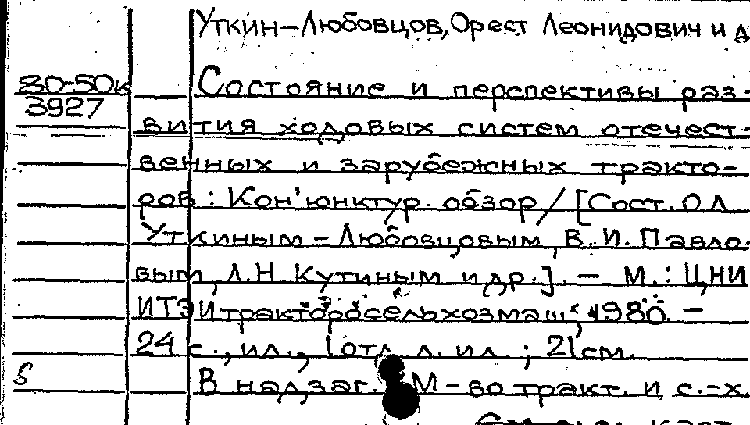 Уткин-Любовцов, Орест Леонидович и д
80-50к
3927
Состояние и перспективы раз-
вития ходовых систем отечест-
венных и зарубежных тракто-
ров: Кон'юнктур. обзор/[Сост. О Л
Уткиным-Любовцовым, В. И. Павло
вым, Л.Н. Кутиным и др.]. - М.: ЦНИ
ИТЭИтракторосельхозмаш, 1980. -
24 с., ил., 1 отд. л. ил.; 21см.
В надзаг.: М-во тракт. и с.-х.